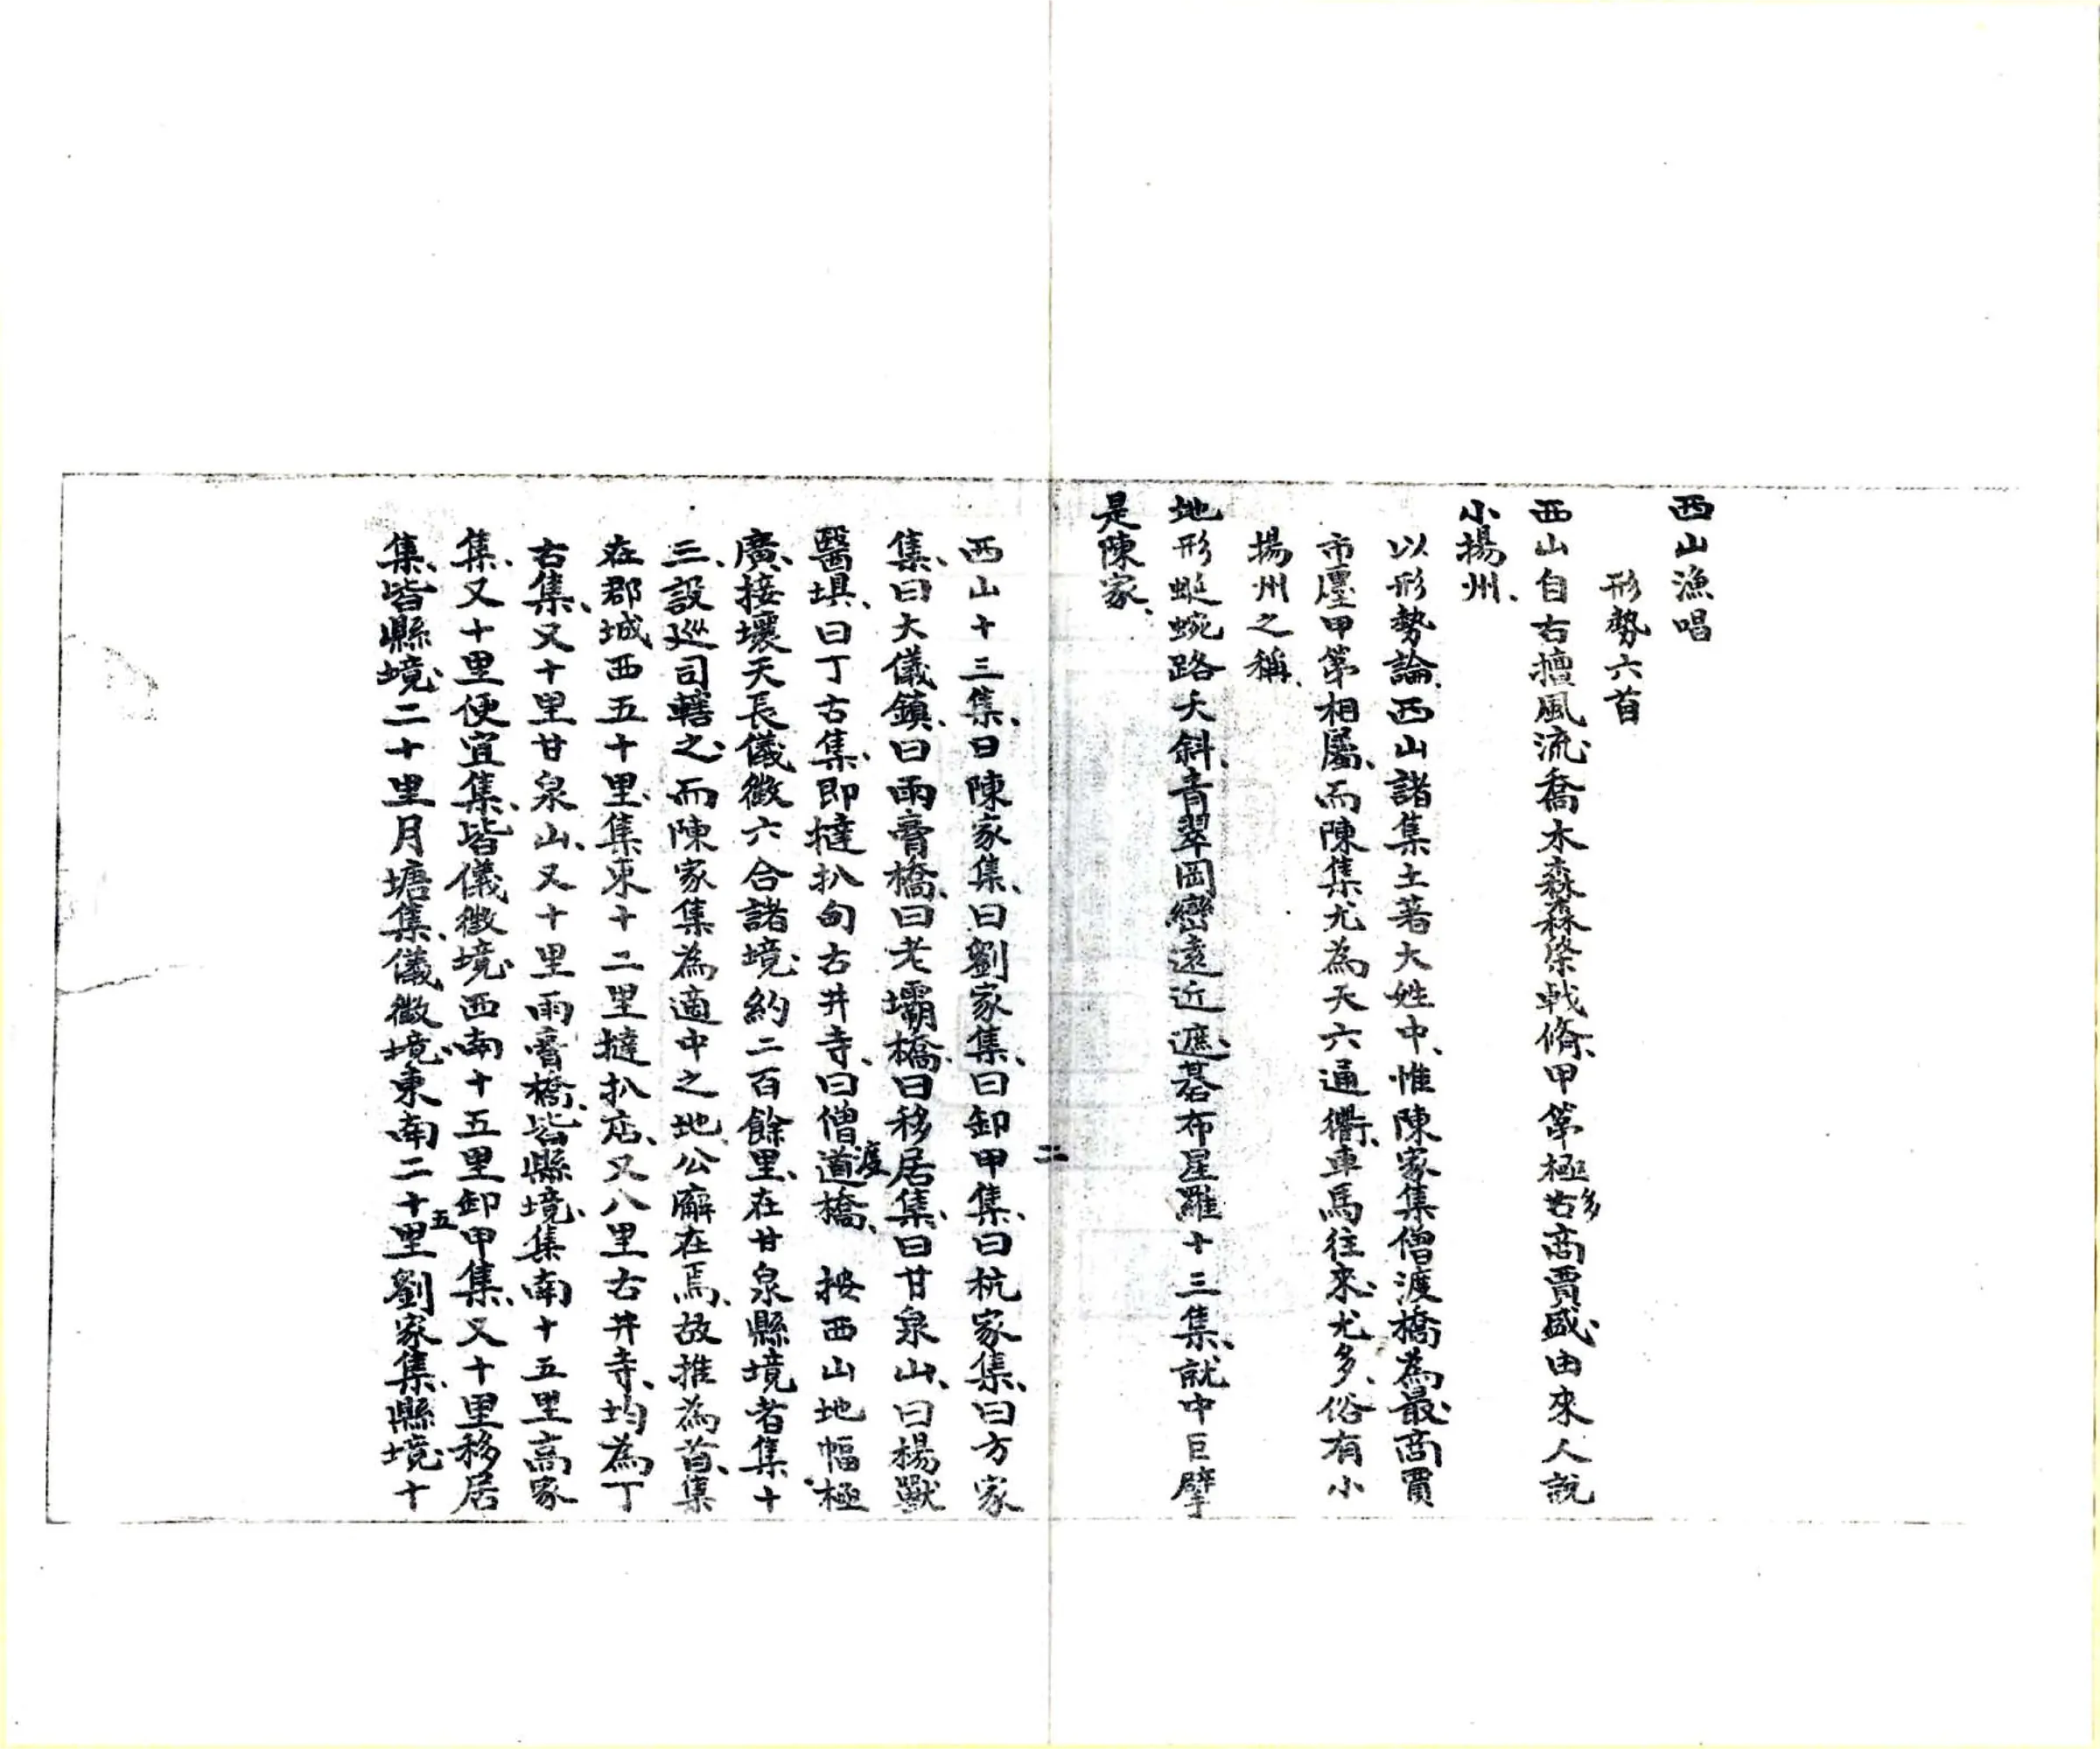 西山漁唱
形勢六首
西山自古擅風流、喬木森森棨戟脩、甲第極多商賈盛、由來人說
小揚州、
以形勢論、西山諸集土著大姓中、惟陳家集僧渡橋為最、商賈
市廛甲第相屬、而陳集尤為天六通衢、車馬往來、尤多、俗有小
揚州之稱、
地形蜒蜿路夭斜、青翠岡巒遠近遮、碁布星羅十三集、就中巨擘
是陳家、
二
西山十三集、曰陳家集、曰劉家集、曰卸甲集、曰杭家集、曰方家
集、曰大儀鎮、曰雨膏橋、曰老壩橋、曰移居集、曰甘泉山、曰楊獸
醫垻、曰丁古集、即撻扒甸古井寺、曰僧道渡橋、 按西山地幅極
廣、接壤天長儀徵六合諸境、約二百餘里、在甘泉縣境者集十
三、設巡司轄之、而陳家集為適中之地、公廨在焉、故推為首、集
在郡城西五十里、集東十二里撻扒店、又八里古井寺、均為丁
古集、又十里甘泉山、又十里雨膏橋、皆縣境、集南十五里高家
集、又十里便宜集、皆儀徵境、西南十五里卸甲集、又十里移居
集、皆縣境、二十里月塘集、儀徵境、東南二十五里劉家集、縣境、十